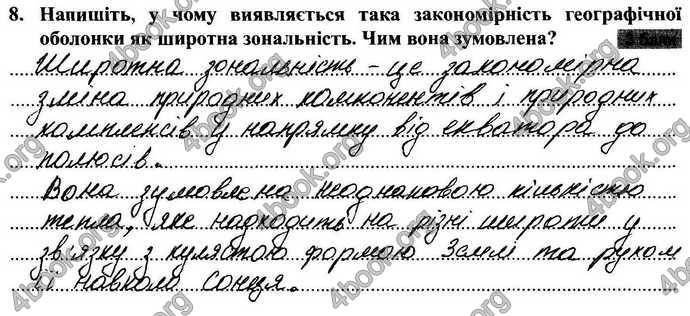 8. Напишіть, у чому виявляється така закономірність географічної
оболонки як широтна зональність. Чим вона зумовлена?
Широтна зональність – це закономірна
зміна природних компонентів і природних
комплексів у напрямку від екватора до
полюсів.
Вона зумовлена неоднаковою кількістю
тепла, яке надходить на різні широти у
зв'язку з кулястою формою Землі та рухом
її навколо Сонця.
4book.org